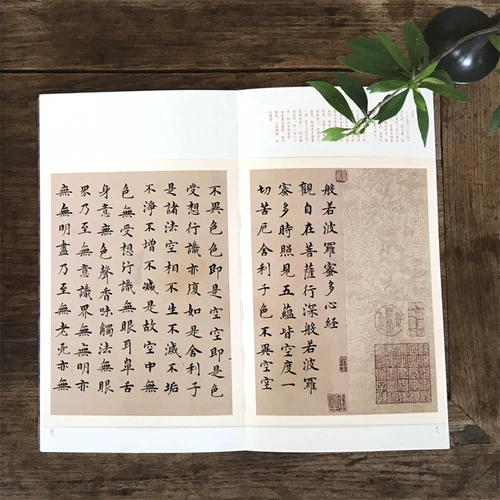 般若波羅蜜多心經
觀自在菩薩行深般若波羅
蜜多時照見五蘊皆空度一
切苦厄舍利子色不異空空
不異色色即是空空即是色
受想行識亦復如是舍利子
是諸法空相不生不滅不垢
不淨不增不減是故空中無
色無受想行識無眼耳鼻舌
身意無色聲香味觸法無眼
界乃至無意識界無無明亦
無無明盡乃至無老死亦無